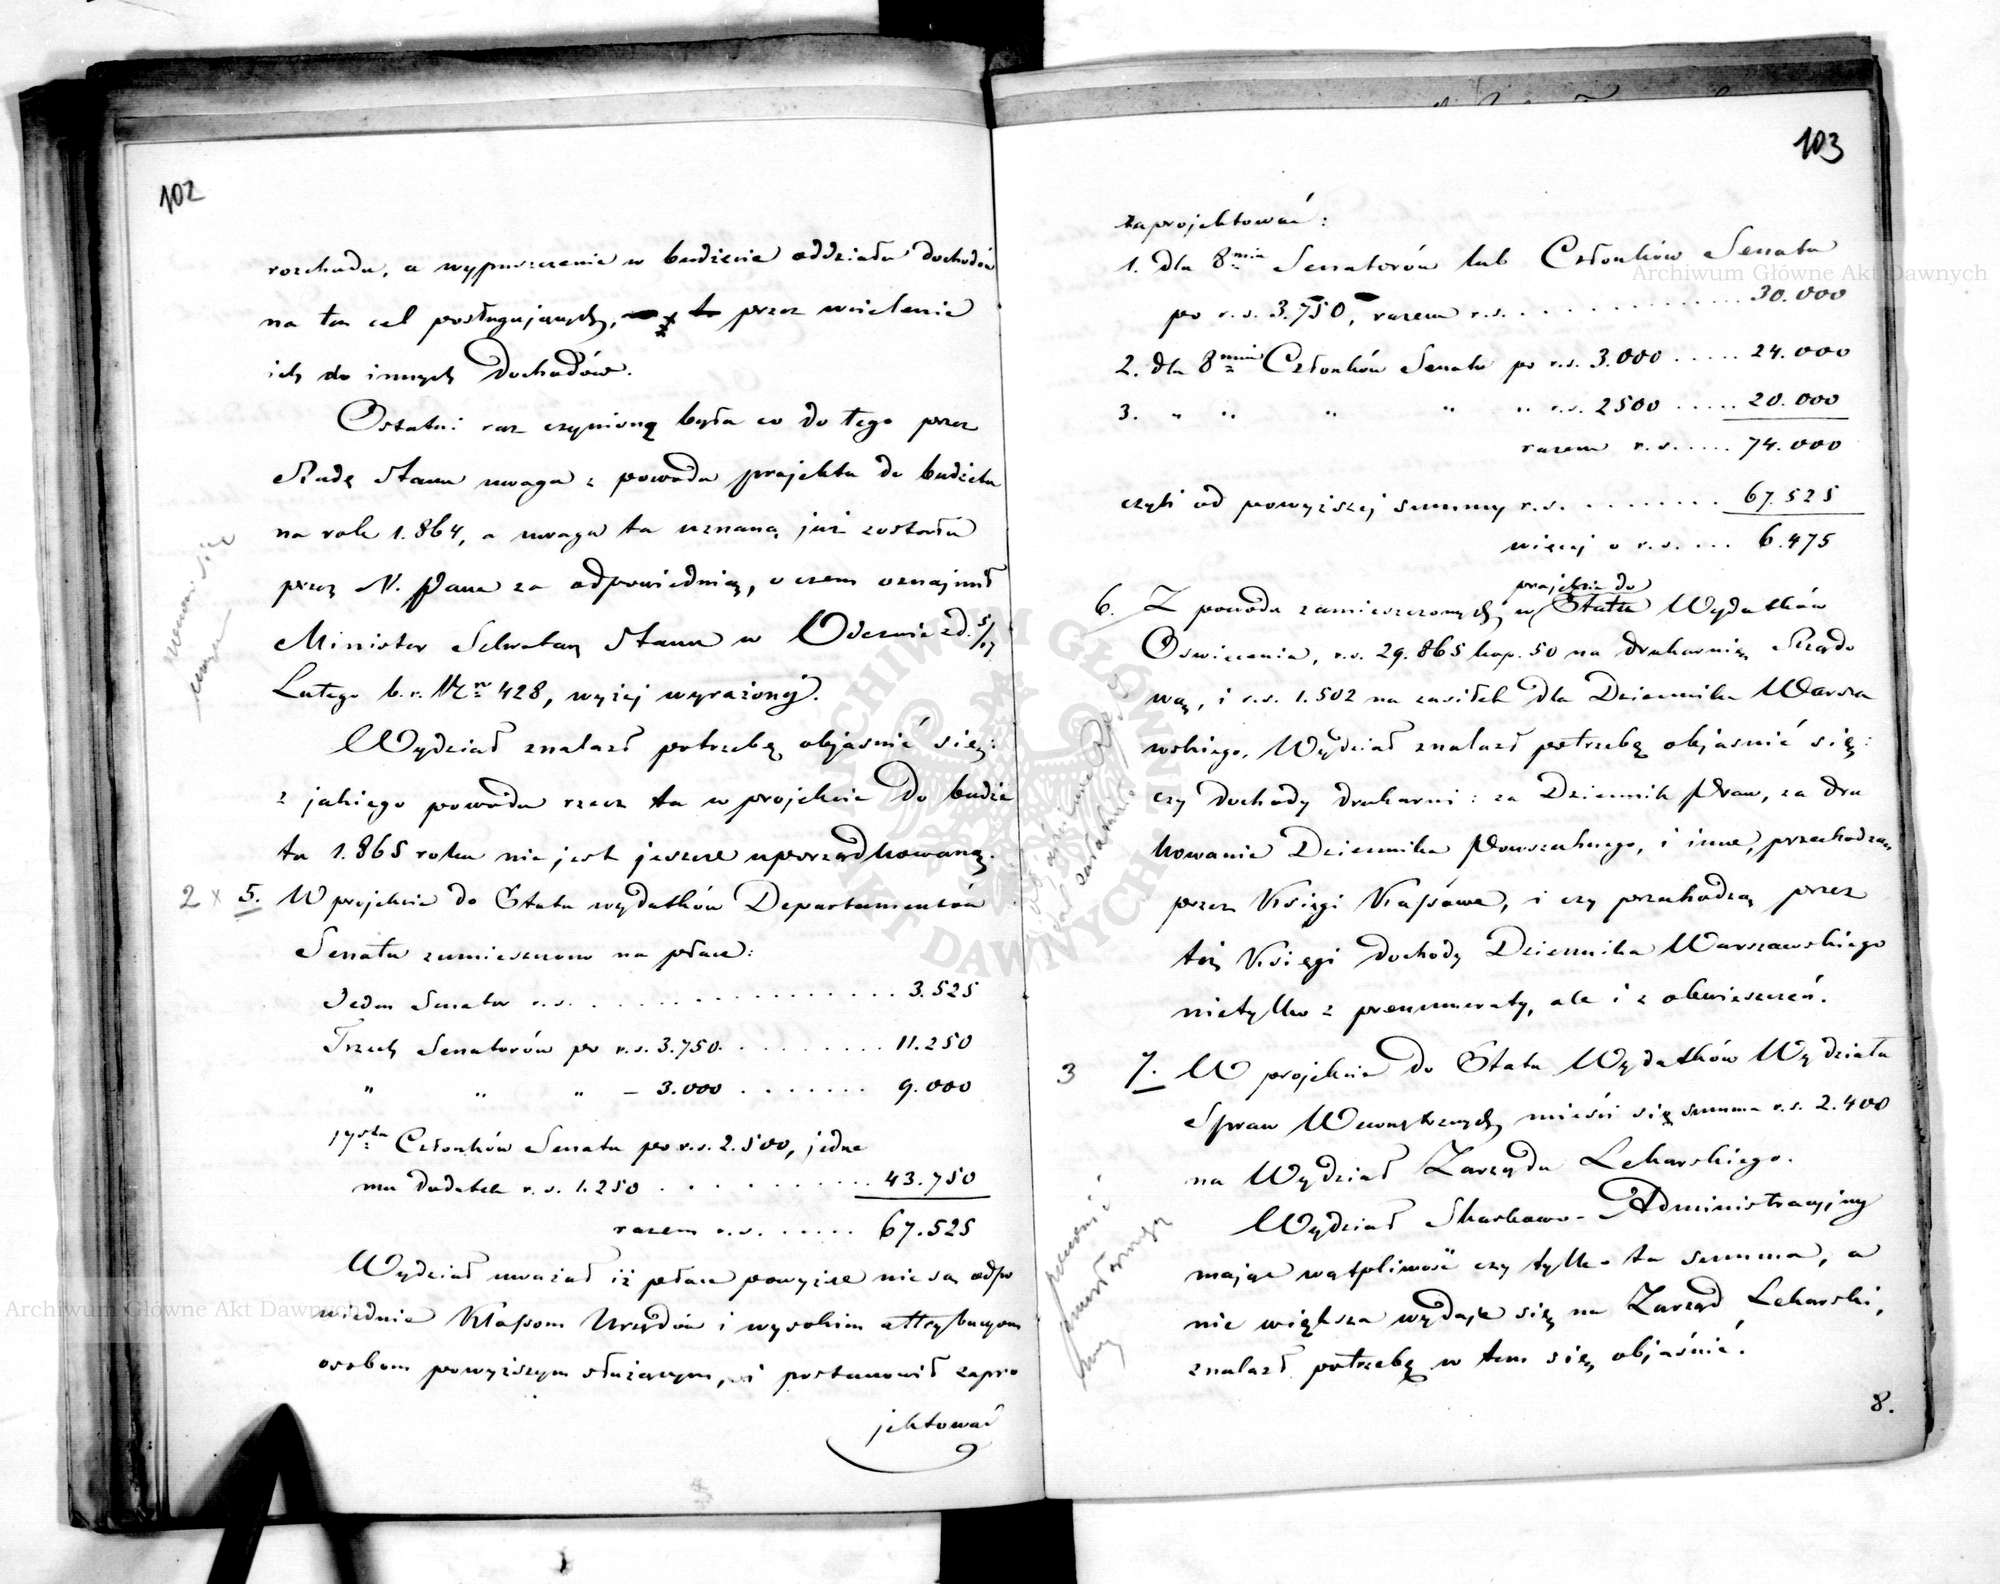 102
rozchodu, a wypuszczenie w budżecie oddziału dochodów
na ten cel posługujących, przez wcielenie
ich do innych dochodów.
Ostatni raz czynioną była co do tego przez
Radę Stanu uwaga z powodu projektu do budżetu
na rok 1.864, a uwaga ta uznaną już została
przez N. Pana za odpowiednią, o czem oznajmił
Minister Sekretarz Stanu w Odezwie z d. 5/17
Lutego b.r. Nr 428, wyżej wyrażonej.
Wydział znalazł potrzebę objaśnić się:
z jakiego powodu rzecz ta w projekcie do budże
tu 1.865 roku nie jest jeszcze uporządkowaną.
2 x 5. W projekcie do Etatu wydatków Departamentów
Senatu zamieszczono na płace:
Jeden Senator r.s. . . . . . . . . . 3.525
Trzech Senatorów po r.s. 3.750. . . . . . . . . 11.250
" " " – 3.000 . . . . . . . 9.000
17stu Członków Senatu po r.s. 2.500, jeden
ma dodatek r.s. 1.250 . . . . . . . . . 43.750
razem r.s. . . . . . 67.525
Wydział uważał iż płace powyższe nie są odpo
wiednie Klassom Urzędów i wysokim attrybucyom
osobom powyższym służącym, i postanowił zapro
jektować
103
zaprojektować:
1. dla 8miu Senatorów lub Członków Senatu
po r.s. 3.750, razem r.s. . . . . . . . . . 30.000
2. dla 8miu Członków Senatu po r.s. 3.000 . . . . . 24.000
3. " " " " " r.s. 2500 . . . . . 20.000
razem r.s. . . . . 74.000
czyli od powyższej summy r.s. . . . . . . . . 67.525
więcej o r.s. . . . 6.475
projekcie do
6. Z powodu zamieszczonych w Etatu Wydatków
Oświecenia, r.s. 29.865 kop. 50 na drukarnię Rządo
wą, i r.s. 1.502 na zasiłek dla Dziennika Warsza
wskiego, Wydział znalazł potrzebę objaśnić się:
czy dochody drukarni: za Dziennik Praw, za dru
kowanie Dziennika Powszechnego, i inne, przechodzą
przez Księgi Kassowe, i czy przechodzą przez
też Księgi dochody Dziennika Warszawskiego
nietylko z prenumeraty, ale i z obwieszczeń.
3 7. W projekcie do Etatu Wydatków Wydziału
Spraw Wewnętrznych mieści się summa r.s. 2.400
na Wydział Zarządu Lekarskiego.
Wydział Skarbowo-Administracyjny
mając wątpliwość czy tylko ta summa, a
nie większa wydaje się na Zarząd Lekarski,
znalazł potrzebę w tem się objaśnić.
8.
Archiwum Główne Akt Dawnych
Archiwum Główne Akt Dawnych
ARCHIWUM GŁÓWNE AKT DAWNYCH